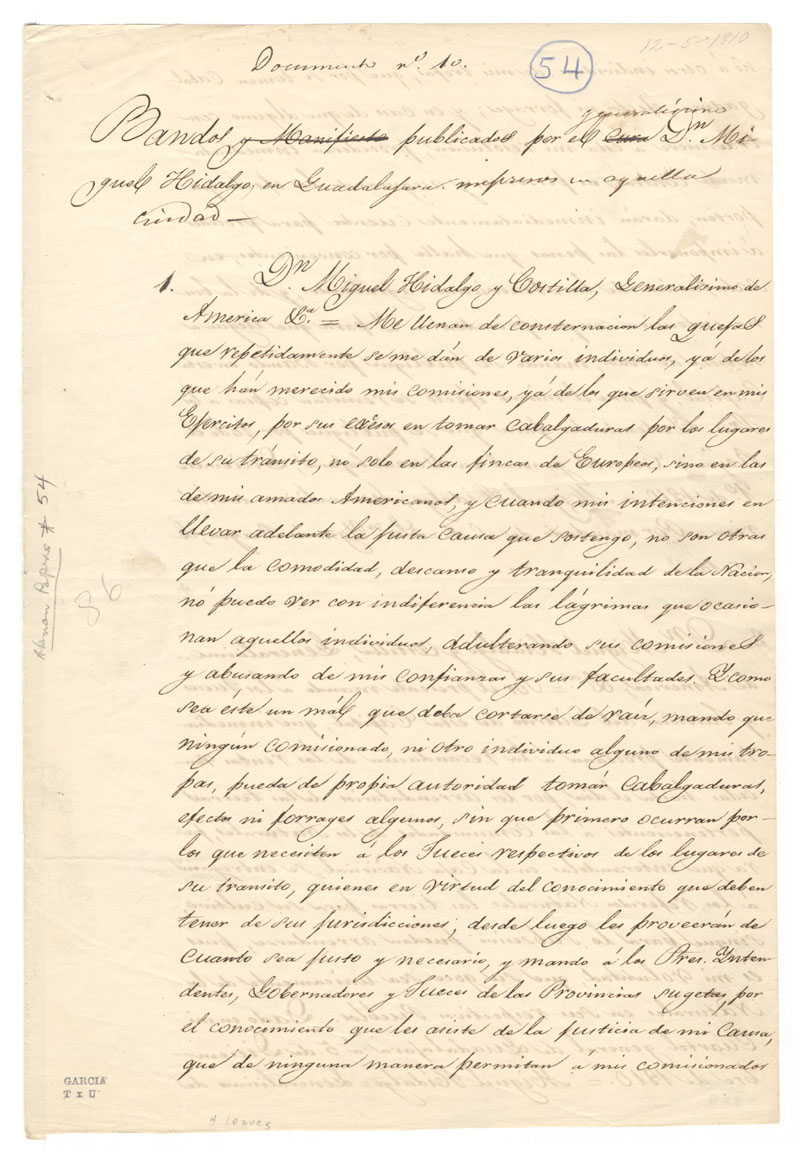 12-5-1810
Documento nº. 10.
54
generalisimo
Bandos y Manifiesto publicados por el Cura Dn. Mi-
guel Hidalgo, en Guadalajara. impresos en aquella
ciudad —
1. Dn. Miguel Hidalgo y Costilla, Generalisimo de
America &a. = Me llenan de consternacion las quejas
que repetidamente se me dán de varios individuos, yá de los
que hán merecido mis comisiones, yá de los que sirven en mis
Ejercitos, por sus exêsos en tomar cabalgaduras por los lugares
de su tránsito, nó solo en las fincas de Europeos, sino en las
de mis amados Americanos, y cuando mis intenciones en
llevar adelante la justa causa que sostengo, no son otras
que la comodidad, descanso y tranquilidad de la Nacion,
nó puedo ver con indiferencia las lágrimas que ocasio-
nan aquellos individuos, adulterando sus comisiones
y abusando de mis confianzas y sus facultades. Y como
sea éste un mál que deba cortarse de raíz, mando que
ningún comisionado, ni otro individuo alguno de mis tro-
pas, pueda de propia autoridad tomár cabalgaduras,
efectos ni forrages algunos, sin que primero ocurran por
los que necesiten á los Jueces respectivos de los lugares de
su transito, quienes en virtud del conocimiento que deben
tener de sus jurisdicciones, desde luego les proveerán de
cuanto sea justo y necesario, y mando á los Sres. Ynten-
dentes, Gobernadores y Jueces de las Provincias sugetas, por
el conocimiento que les asiste de la justicia de mi causa,
que de ninguna manera permitan á mis comisionados
Alaman Papers # 54
86
GARCIA
T x U
4 leaves